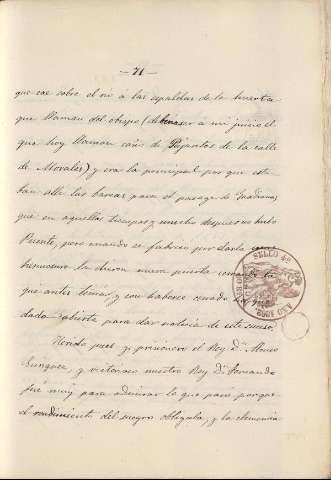 — 71 —
que cae sobre el rio á las espaldas de la huerta
que llaman del obispo (debe ser á mi juicio el
que hoy llaman caño de Pajaritos de la calle
de Morales) y era la principal por que esta-
ban alli las barcas para el pasage de Guadiana
que en aquellos tiempos y mucho despues no hubo
Puente, pero cuando se fabricó por darla
hicieron nueva puerta cerrando la
que antes tenia, y con haberse
dado abierta para dar noticia de este suceso.
Herido pues y prisionero el Rey Dn. Alonso
Enriquez, y victorioso nuestro Rey Dn. Fernando
fué muy para admirar lo que paso porque
el rendimiento del suegro obligaba, y la clemencia
SELLO 4º
AÑO